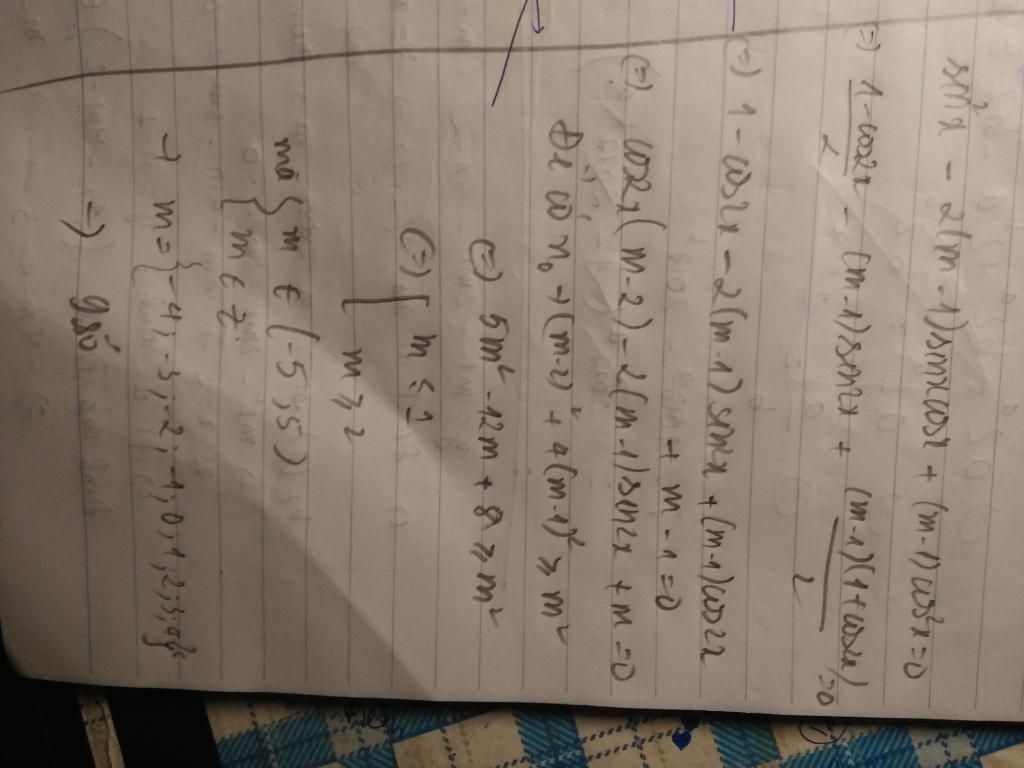 sin²x - 2(m-1)sinxcosx + (m-1)cos²x = 0
(=) 1-cos2x / 2 - (m-1)sin2x + (m-1)(1+cos2x) / 2 = 0
(=) 1 - cos2x - 2(m-1)sin2x + (m-1)cos2x
+ m - 1 = 0
(=) cos2x(m-2) - 2(m-1)sin2x + m = 0
Để có n₀ → (m-2)² + 4(m-1)² ≥ m²
(=) 5m² - 12m + 8 ≥ m²
(=) [ m ≤ 1
m ≥ 2
mà { m ∈ (-5;5)
{ m ∈ Z
→ m = {-4; -3; -2; -1; 0; 1; 2; 3; 4}
=) 9 số